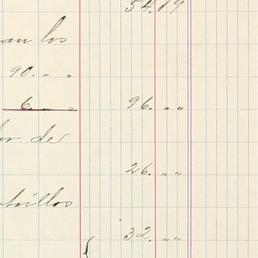 54.19
an los
90. " "
6. " " 96. " "
de
26. " "
32. " "